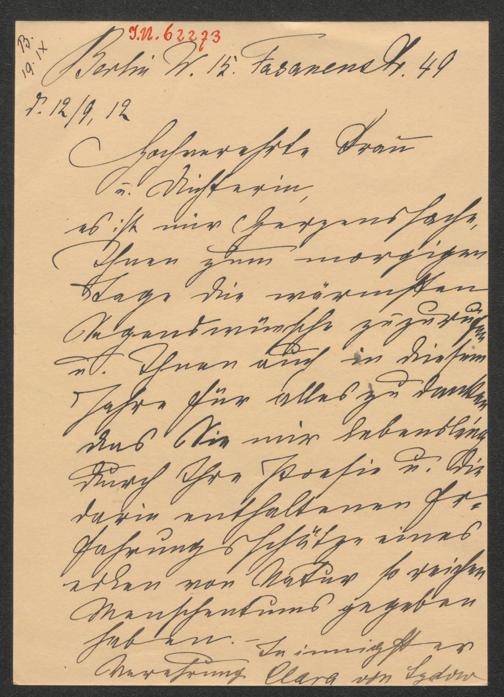 B.
19. IX
I.N. 62273
Berlin W. 15. Fasanenstr. 49
d. 12/9, 12
Hochverehrte Frau
u. Dichterin,
es ist mir Herzenssache,
Ihnen zum morgigen
Tage die wärmsten
Segenswünsche zuzurufen
u. Ihnen auch in diesem
Jahre für alles zu danken
das Sie mir lebenslang
durch Ihre Poesie u. die
darin enthaltenen Er-
fahrungsschätze eines
edlen von Natur so reichen
Menschentums gegeben
haben. – In innigster
Verehrung Clara von Sydow